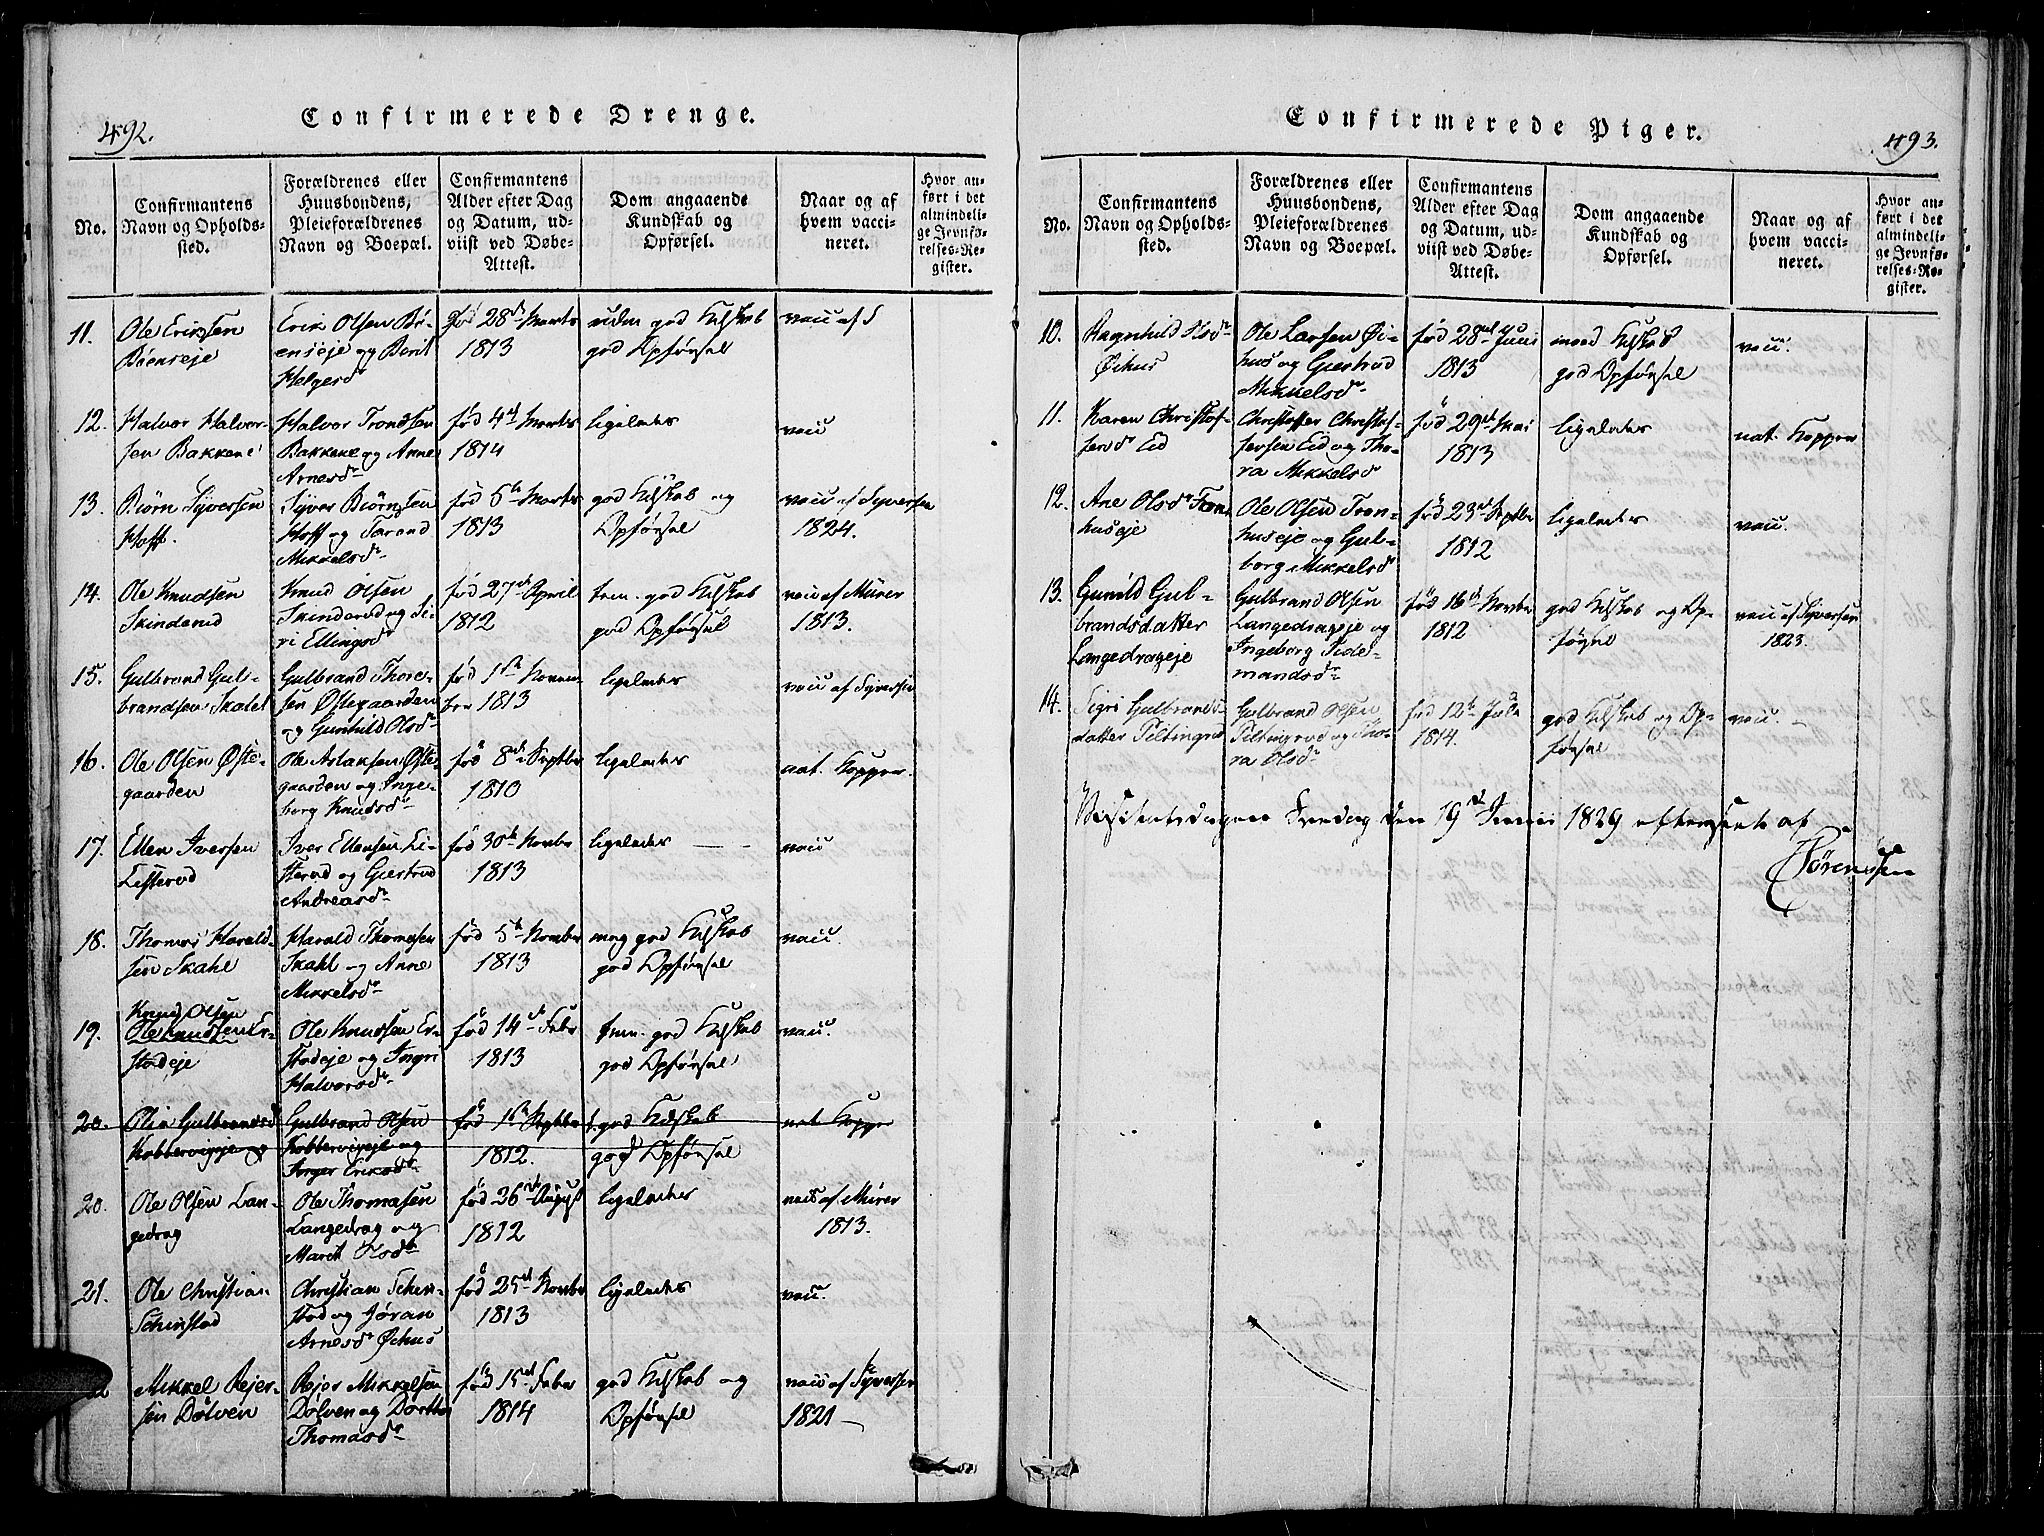 492.
Confirmerede Drenge.
No.
Confirmantens
Navn og Opholds-
sted.
Forældrenes eller
Huusbondens,
Pleieforældrenes
Navn og Boepæl.
Confirmantens
Alder efter Dag
og Datum, ud-
viist ved Døbe-
Attest.
Dom angaaende
Kundskab og
Opførsel.
Naar og af
hvem vacci-
neret.
Hvor an-
ført i det
almindeli-
ge Jevnfø-
relses-Re-
gister.
11.
Ole Eriksen
Böenseje
Erik Olsen Bö-
enseje og Berit
Helgersdr
fød 28de Marts
1813
uden god Kdskab
god Opførsel
vacc af S
12.
Halvor Halvor-
sen Bakkene
Halvor Trondsen
Bakkene og Anne
Arnesdr
fød 4de Marts
1814
ligeledes
vacc
13.
Biørn Syversen
Hoff.
Syver Biørnsen
Hoff og Tarand
Mikkelsdr
fød 5te Marts
1813
god Kdskab og
Opførsel
vacc af Syversen
1824.
14.
Ole Knudsen
Skinderud
Knud Olsen
Skinderud og Si-
ri Ellingsdr
fød 27de April
1812
tem. god Kdskab
god Opførsel
vacc af Mürer
1813.
15.
Gulbrand Gul-
brandsen Skalet
Gulbrand Thore-
sen Østegaarden
og Gunhild Olsdr
fød 1ste Novem-
ber 1813
ligeledes
vacc af Syversen
16.
Ole Olsen Øste-
gaarden
Ole Aslaksen Øste-
gaarden og Inge-
borg Knudsdr
fød 8de Septbr
1810
ligeledes
nat. Kopper.
17.
Ellen Iversen
Listerud
Iver Ellensen Li-
sterud og Giertrud
Andreasdr
fød 30te Novbr
1813
ligeledes
vacc
18.
Thomas Harald-
sen Skahl
Harald Thomasen
Skahl og Anne
Mikkelsdr
fød 5te Novbr
1813
meg god Kdskab
god Opførsel
vacc.
19.
Knud Olsen
Ole Knudsen Er-
stadeje
Ole Knudsen Er-
stadeje og Ingri
Halvorsdr
fød 14de Febr
1813
tem. god Kdskab
god Opførsel
vacc.
20.
Olia Gulbrandsd
Kobbervigeje
Gulbrand Olsen
Kobbervigeje og
Inger Eriksdr
fød 1ste Septbr
1812.
t. god Kdskab
god Opførsel
nat Kopper
20.
Ole Olsen Lan-
gedrag
Ole Thomasen
Langedrag og
Marit Olsdr
fød 26de August
1812
ligeledes
vacc af Mürer
1813.
21.
Ole Christian
Schinstad
Christian Schin-
stad og Jøran
Arnesdr Øehus
fød 25de Novbr
1813
ligeledes
vacc.
Mikkel Rejer-
sen Dölven
Rejer Mikkelsen
Dölven og Dorthe
Thomasdr
fød 15de Febr
1814
god Kdskab og
Opførsel
vacc af Syversen
1821
493.
Confirmerede Piger.
No.
Confirmantens
Navn og Opholds-
sted.
Forældrenes eller
Huusbondens,
Pleieforældrenes
Navn og Boepæl.
Confirmantens
Alder efter Dag
og Datum, ud-
viist ved Døbe-
Attest.
Dom angaaende
Kundskab og
Opførsel.
Naar og af
hvem vacci-
neret.
Hvor an-
ført i det
almindeli-
ge Jevnfø-
relses-Re-
gister.
10.
Ragnhild Olsdr
Øihus
Ole Larsen Øi-
hus og Giertrud
Mikkelsdr
fød 28de Juni
1813
maad Kdskab
god Opførsel
vacc.
11.
Karen Christof-
fersdr Eid
Christoffer Christof-
fersen Eid og Tho-
ra Mikkelsdr
fød 29de Mai
1813
ligeledes
nat. Kopper
12.
Ane Olsdr Tron-
huseje
Ole Olsen Tron-
huseje og Gul-
borg Mikkelsdr
fød 23de Septbr
1812
ligeledes
vacc.
13.
Gunild Gul-
brandsdatter
Langedrageje
Gulbrand Olsen
Langedrageje og
Ingeborg Tide-
mandsdr
fød 16de Novbr
1812
god Kdskab og Op-
førsel
vacc af Syversen
1823.
14.
Sigri Gulbrands-
datter Tiltingrud
Gulbrand Olsen
Tiltingrud og Tho-
ra Olsdr
fød 12te Juli
1814.
god Kdskab og Op-
førsel
vacc.
Visitatsdagen Fredag den 19de Junii 1829 efterseete af
Sørenssen